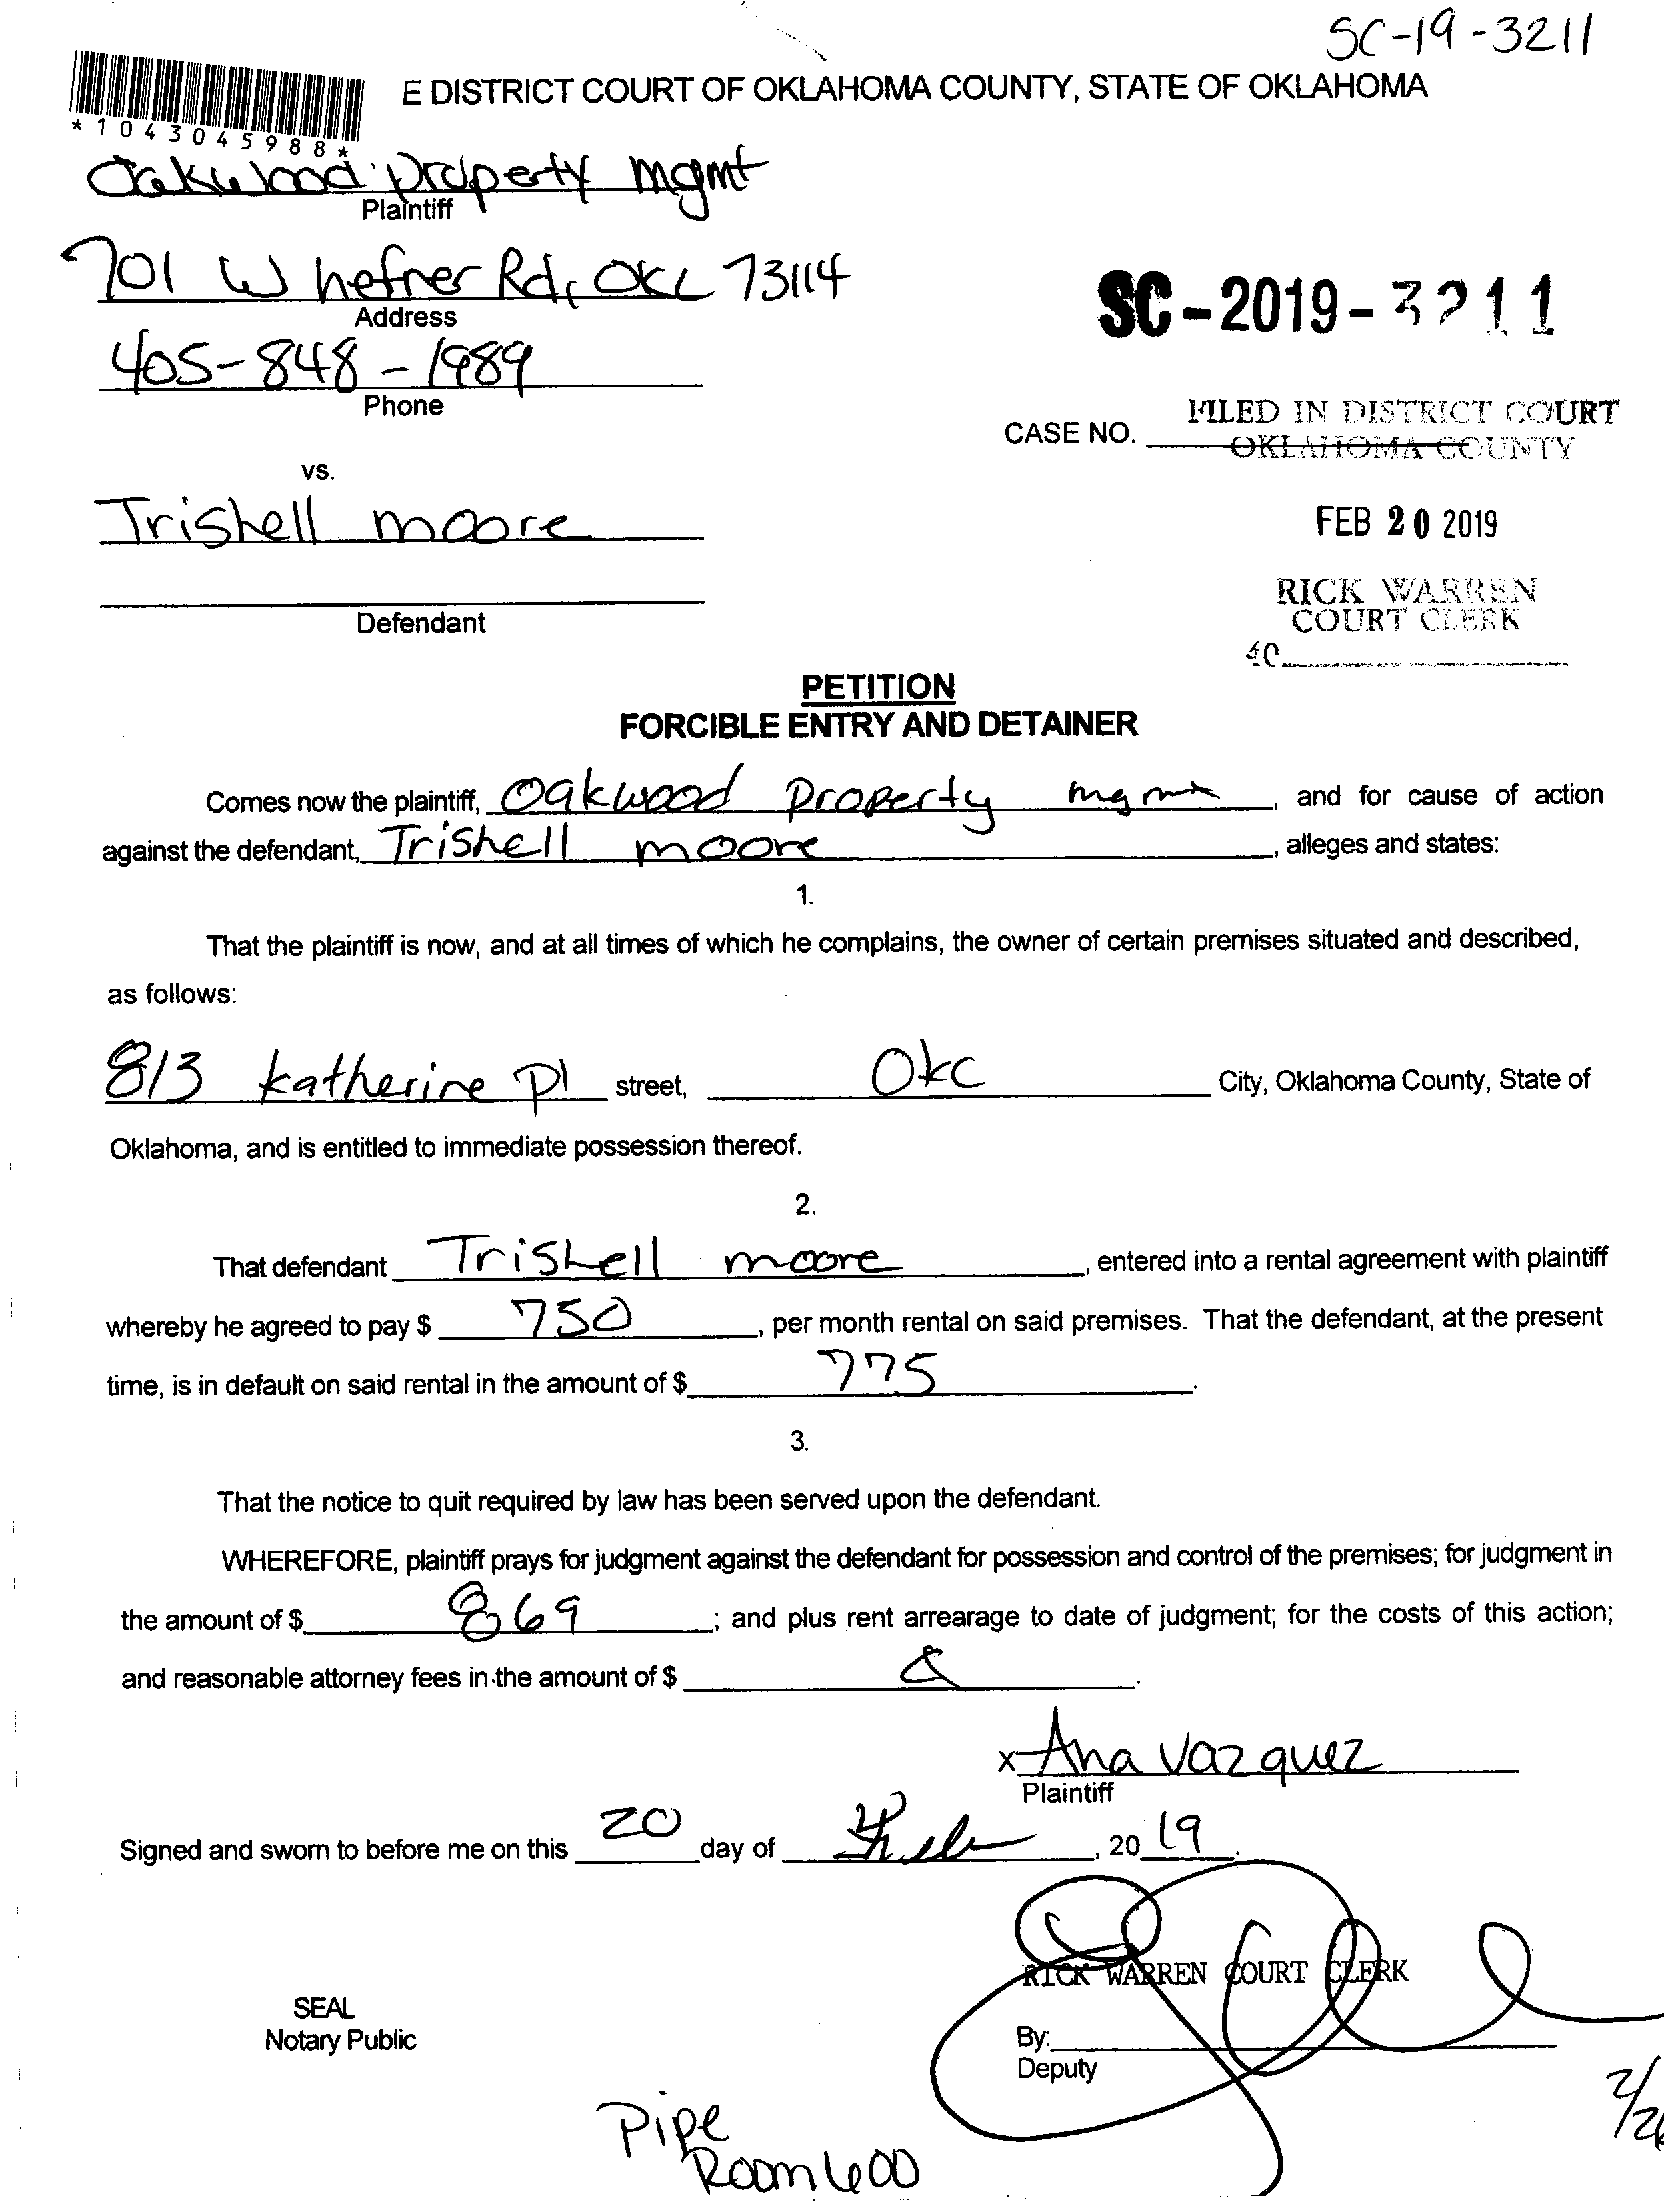 SC-19-3211
E DISTRICT COURT OF OKLAHOMA COUNTY, STATE OF OKLAHOMA
*1043045988*
Oakwood Property mgmt
Plaintiff
701 W hefner Rd, OKC 73114
Address
SC-2019-3211
405-848-1989
Phone
CASE NO.
FILED IN DISTRICT COURT
OKLAHOMA COUNTY
vs.
Trishell moore
FEB 20 2019
Defendant
RICK WARREN
COURT CLERK
40
PETITION
FORCIBLE ENTRY AND DETAINER
Comes now the plaintiff, Oakwood Property mgmt, and for cause of action
against the defendant, Trishell moore, alleges and states:
1.
That the plaintiff is now, and at all times of which he complains, the owner of certain premises situated and described,
as follows:
813 Katherine Pl street, OKC City, Oklahoma County, State of
Oklahoma, and is entitled to immediate possession thereof.
2.
That defendant Trishell moore, entered into a rental agreement with plaintiff
whereby he agreed to pay $ 750, per month rental on said premises. That the defendant, at the present
time, is in default on said rental in the amount of $ 775.
3.
That the notice to quit required by law has been served upon the defendant.
WHEREFORE, plaintiff prays for judgment against the defendant for possession and control of the premises; for judgment in
the amount of $ 869; and plus rent arrearage to date of judgment; for the costs of this action;
and reasonable attorney fees in the amount of $ .
x Ana Vazquez
Plaintiff
Signed and sworn to before me on this 20 day of Feb, 2019.
RICK WARREN COURT CLERK
SEAL
Notary Public
By:
Deputy
Pipe
Room 600